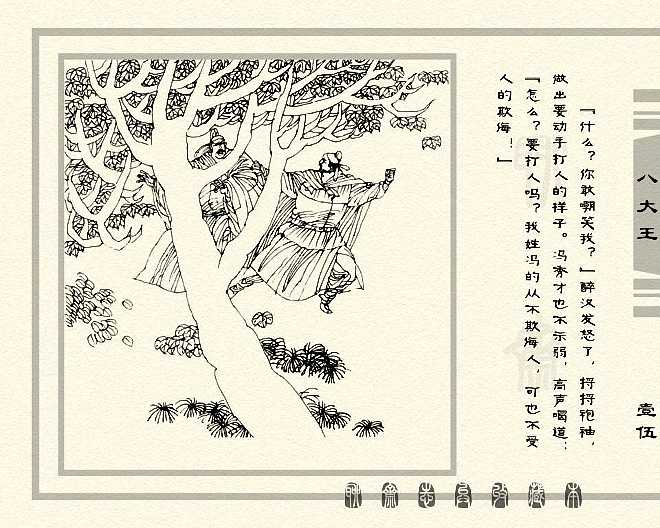 「什么？你敢嘲笑我？」醉汉发怒了，捋捋袍袖，
做出要动手打人的样子。冯秀才也不示弱，高声喝道：
「怎么？要打人吗？我姓冯的从不欺侮人，可也不受
人的欺侮！」
八大王
壹伍
聊斋志异收藏本